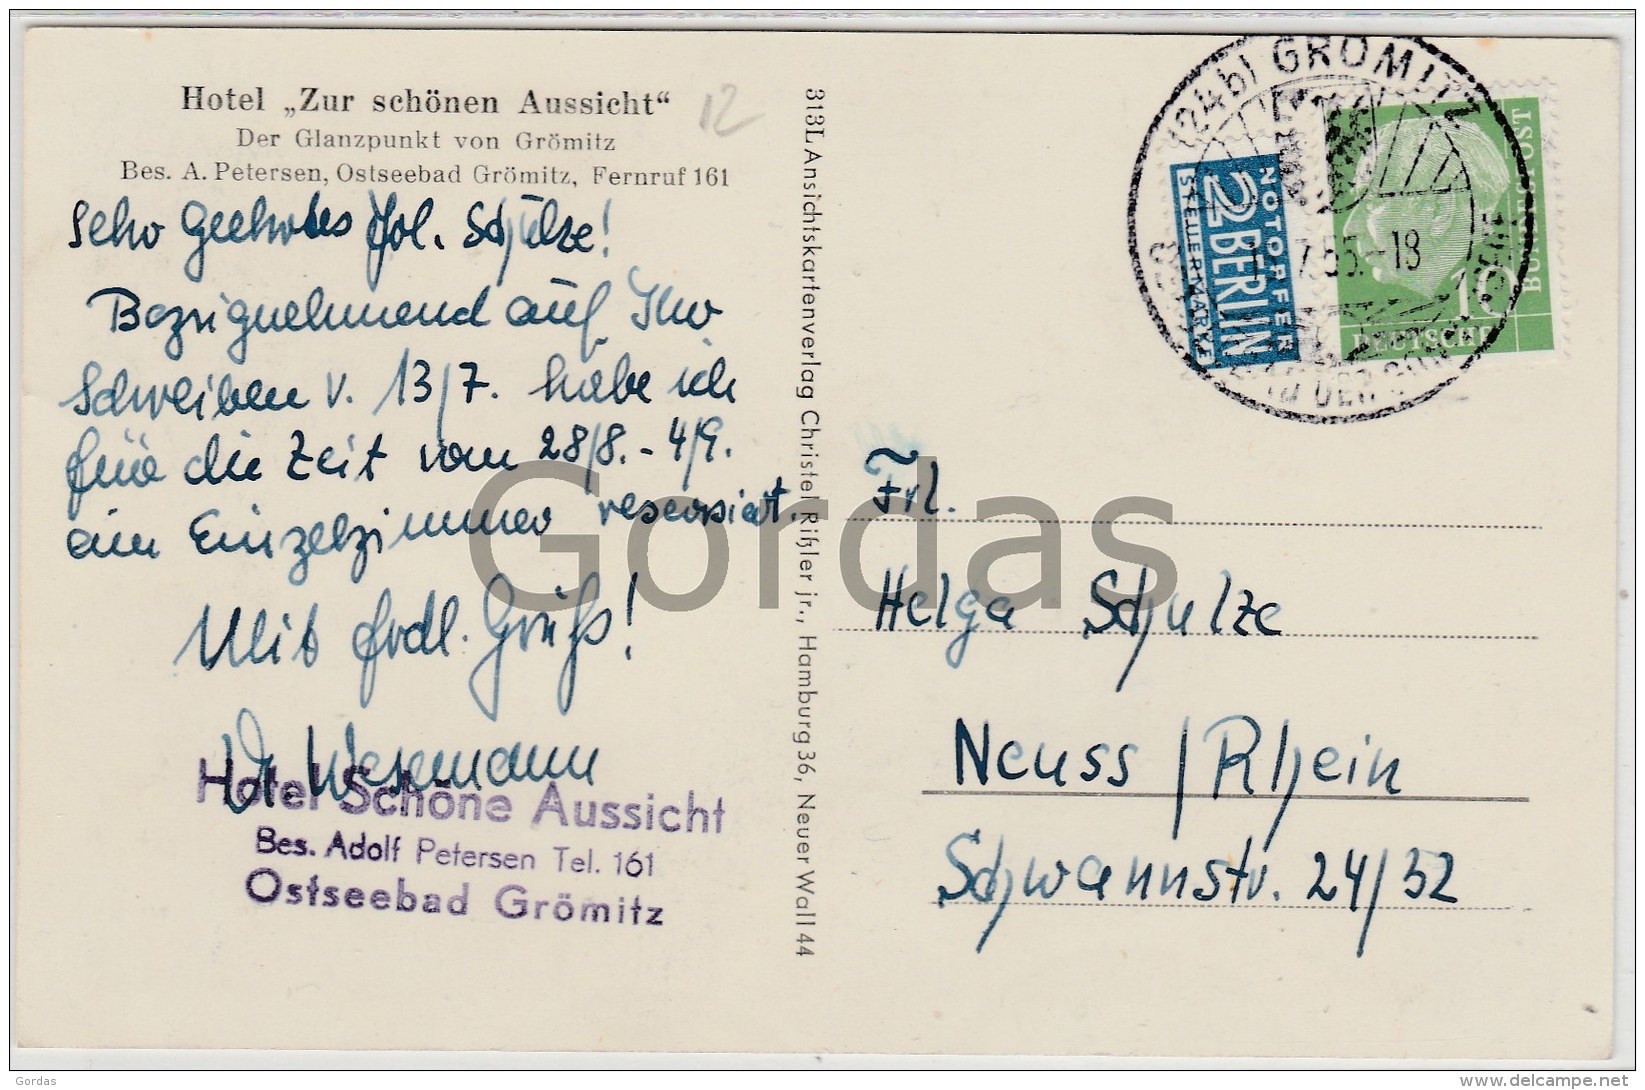 Hotel „Zur schönen Aussicht“
Der Glanzpunkt von Grömitz
Bes. A. Petersen, Ostseebad Grömitz, Fernruf 161
12
Sehr geehrtes Frl. Schulze!
Bezugnehmend auf Ihr
Schreiben v. 13/7. habe ich
für die Zeit vom 28/8. - 4/9.
ein Einzelzimmer reserviert.
Mit frdl. Gruß!
Wesemann
Hotel Schöne Aussicht
Bes. Adolf Petersen Tel. 161
Ostseebad Grömitz
313L Ansichtskartenverlag Christel Rißler jr., Hamburg 36, Neuer Wall 44
(24b) GRÖMITZ
7.55.-18
NOTOPFER
2 BERLIN
STEUERMARKE
DEUTSCHE
BUNDESPOST
10
Frl.
Helga Schulze
Neuss / Rhein
Schwannstr. 24/32
Gordas
Gordas
www.delcampe.net